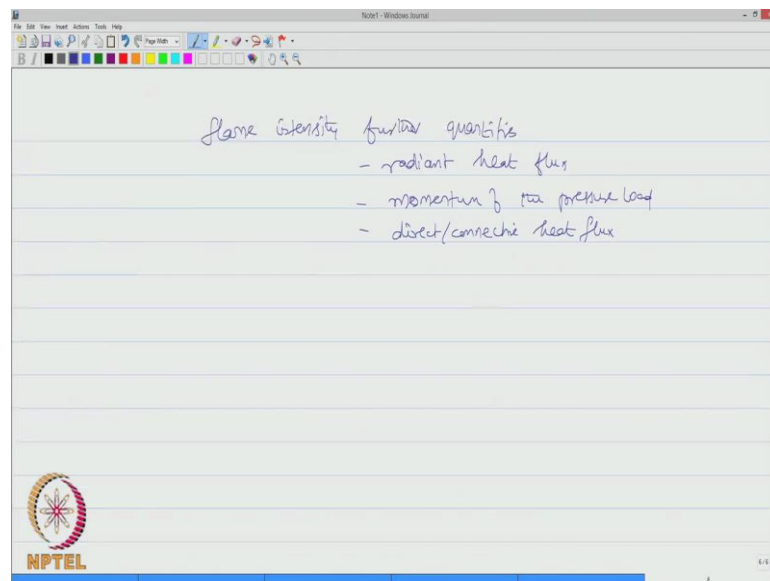 Note1 - Windows Journal
File Edit View Insert Actions Tools Help
Page Width
B I
flame intensity further quantifies
- radiant heat flux
- momentum of the pressure load
- direct/connective heat flux
NPTEL
6/6